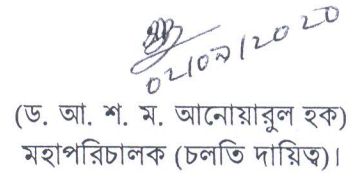 ০২/০৯/২০২০
(ড. আ. শ. ম. আনোয়ারুল হক)
মহাপরিচালক (চলতি দায়িত্ব)।